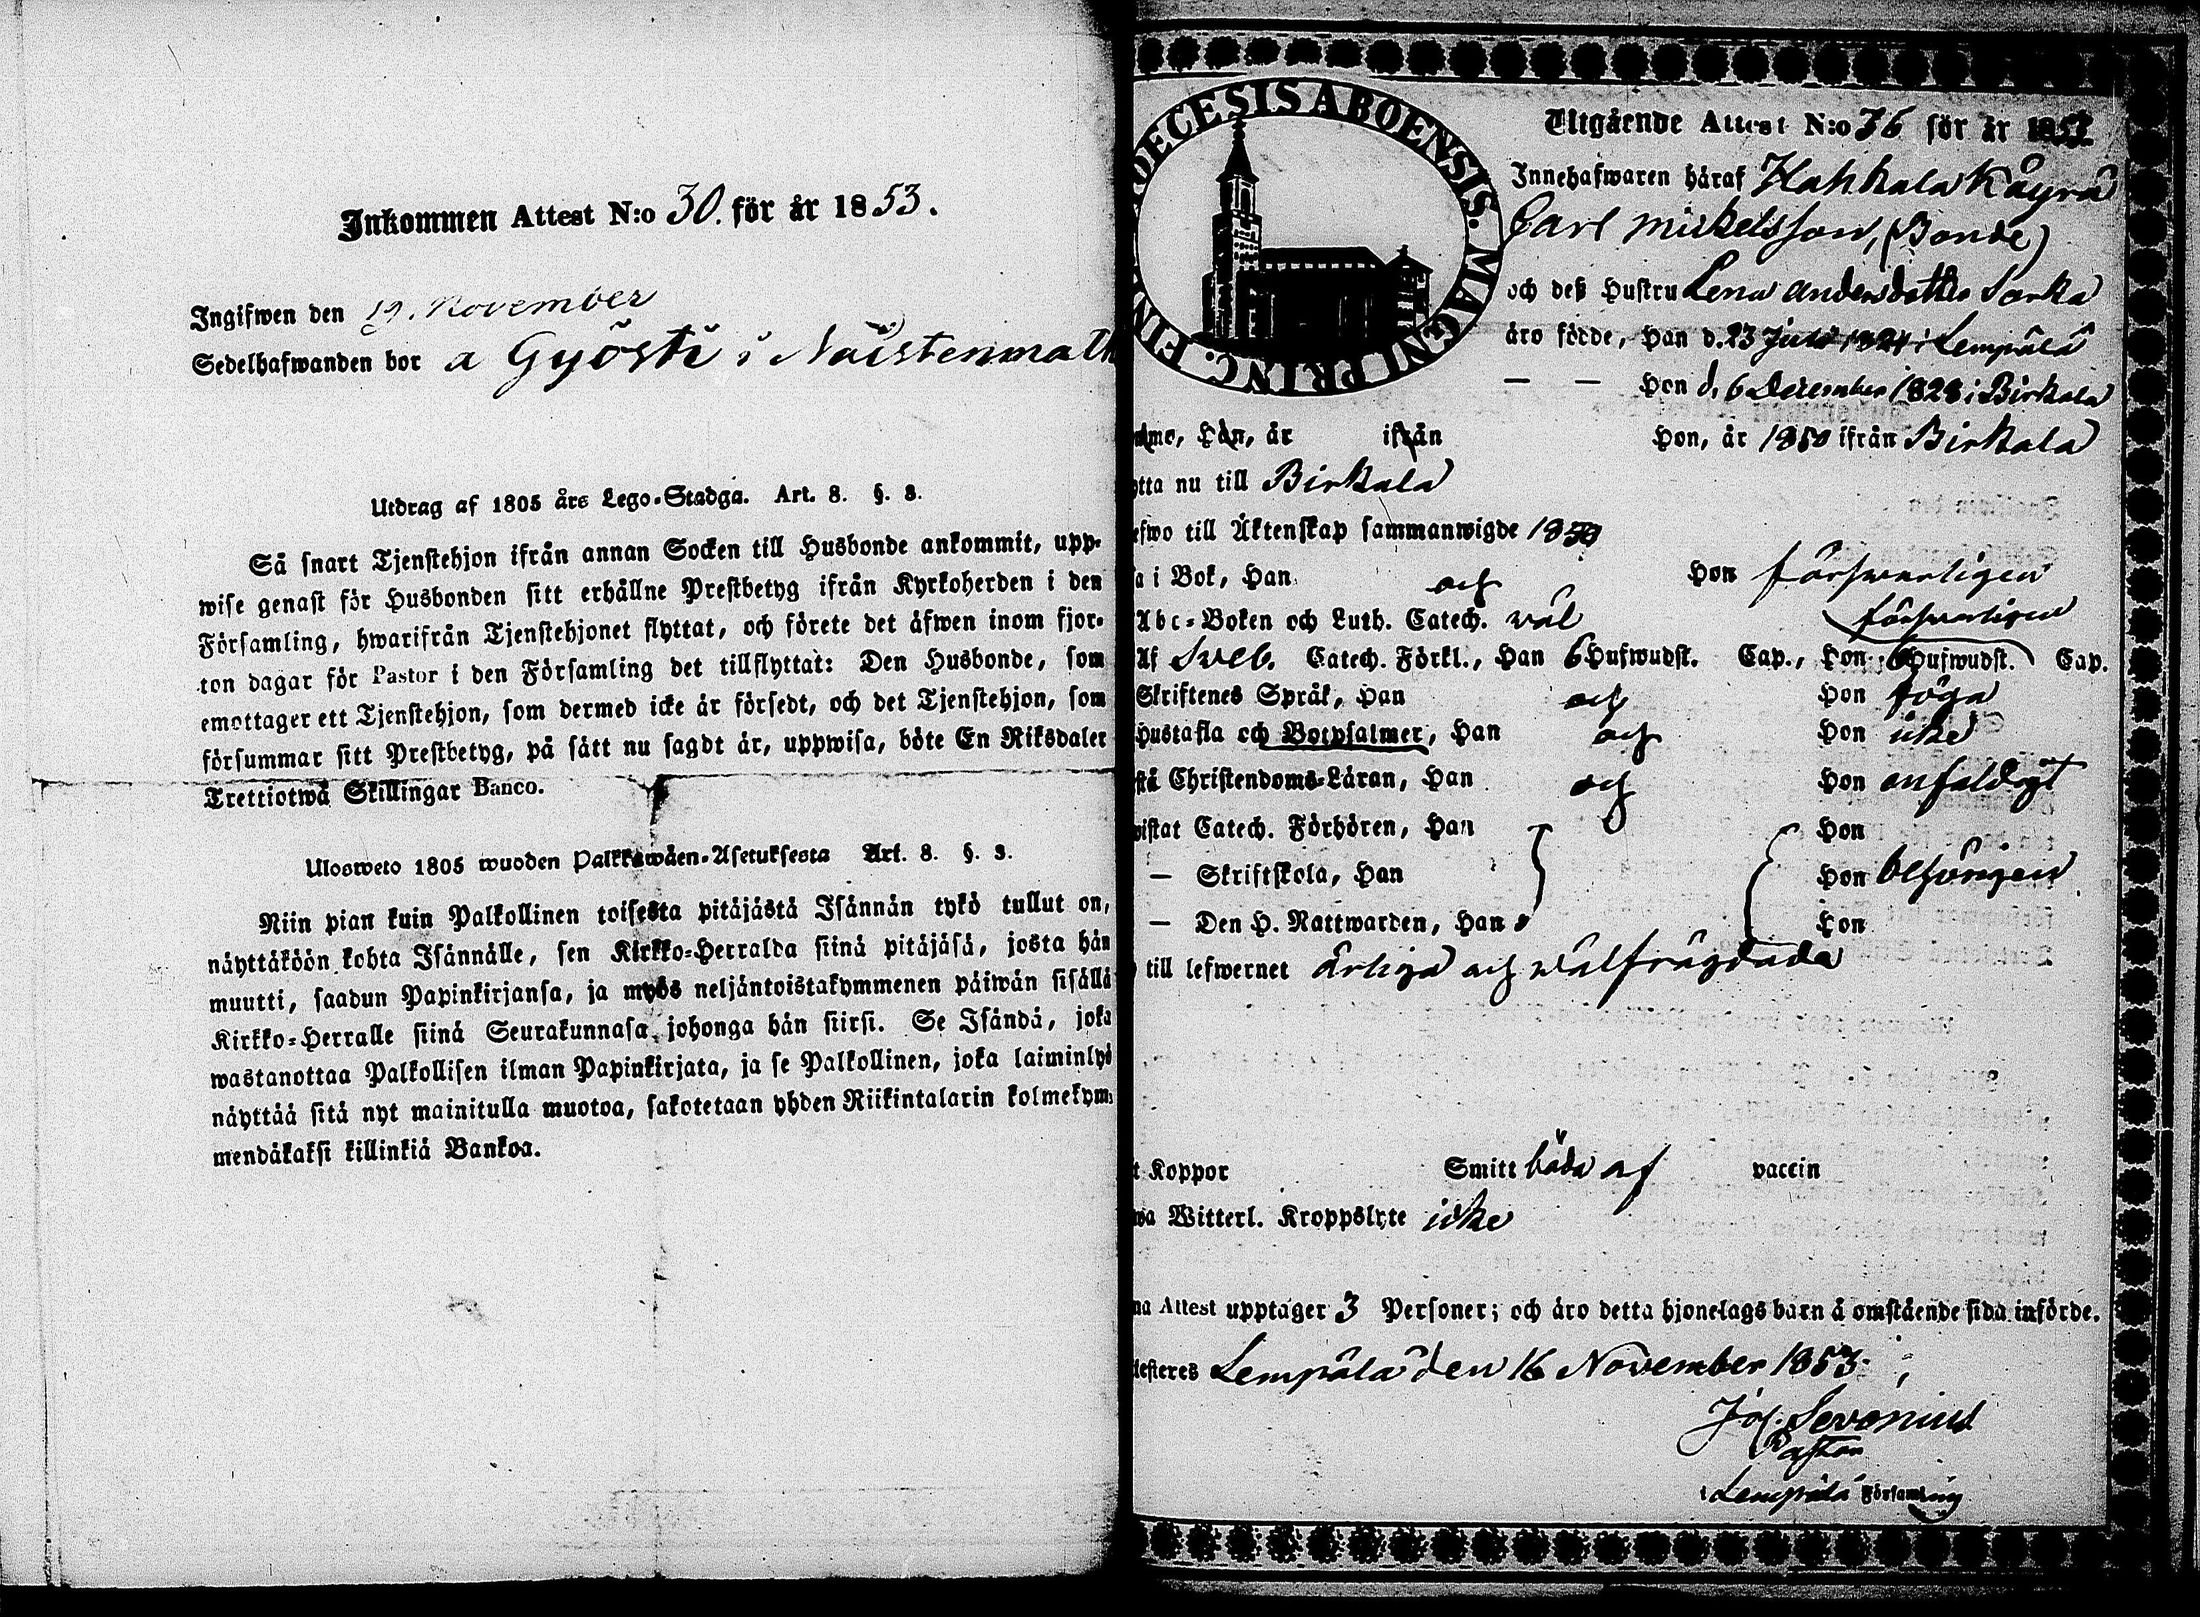 Inkommen Attest N:o 30. för år 1853.
Ingifwen den 19. November
Sedelhafwanden bor å Gyösti i Naistenmatk
Utdrag af 1805 års Lego-Stadga. Art. 8. §. 8.
Så snart Tjenstehjon ifrån annan Socken till Husbonde ankommit, upp-
wise genast för Husbonden sitt erhållne Prestbetyg ifrån Kyrkoherden i den
Församling, hwarifrån Tjenstehjonet flyttat, och förete det äfwen inom fjor-
ton dagar för Pastor i den Församling det tillflyttat: Den Husbonde, som
emottager ett Tjenstehjon, som dermed icke är försedt, och det Tjenstehjon, som
försummar sitt Prestbetyg, på sätt nu sagdt är, uppwisa, böte En Riksdaler
Trettiotwå Skillingar Banco.
Ulosweto 1805 wuoden Palkkawäen-Asetuksesta Art. 8. §. 3.
Niin pian kuin Palkollinen toisesta pitäjästä Isännän tykö tullut on,
näyttäköön kohta Isännälle, sen Kirkko-Herralda siinä pitäjäsä, josta hän
muutti, saadun Papinkirjansa, ja myös neljäntoistakymmenen päiwän sisällä
Kirkko-Herralle siinä Seurakunnasa, johonga hän siirsi. Se Isändä, joka
wastanottaa Palkollisen ilman Papinkirjata, ja se Palkollinen, joka laiminlyö
näyttää sitä nyt mainitulla muotoa, sakotetaan yhden Riikintalarin kolmekym-
mendäkaksi killinkiä Bankoa.
DECESIS ABOENSIS. MAGNI PRINC. FIN
Utgående Attest N:o 76 för år 1853.
Innehafwaren häraf Hahkala Käyrä
Carl Mickelsson, (Bonde)
och deß Hustru Lena Andersdotter Sorka
äro födde, Han d. 23 1824 i Lempälä
— — Hon d. 6 December 1828 i Birkala
Han, år ifrån Hon, år 1850 ifrån Birkala
tta nu till Birkala
efwo till Äktenskap sammanwigde 1850
a i Bok, Han och Hon försvarligen
Abc-Boken och Luth. Catech. väl försvarligen
Af Sveb. Catech. Förkl., Han 6 Hufwudst. Cap., Hon 6 Hufwudst. Cap.
Skriftenes Språk, Han och Hon föga
Hustafla och Botpsalmer, Han och Hon icke
stå Christendoms-Läran, Han och Hon enfaldigt
wistat Catech. Förhören, Han Hon
— Skriftskola, Han Hon behörigen
— Den H. Nattwarden, Han Hon
till lefwernet ärliga och välfrägdade
t Koppor Smitt båda af vaccin
wa Witterl. Kroppslyte icke
na Attest upptager 3 Personer; och äro detta hjonelags barn å omstående sida införde.
testeres Lempälä den 16 November 1853.
Jos. Sevonius
Pastor
i Lempälä Församling